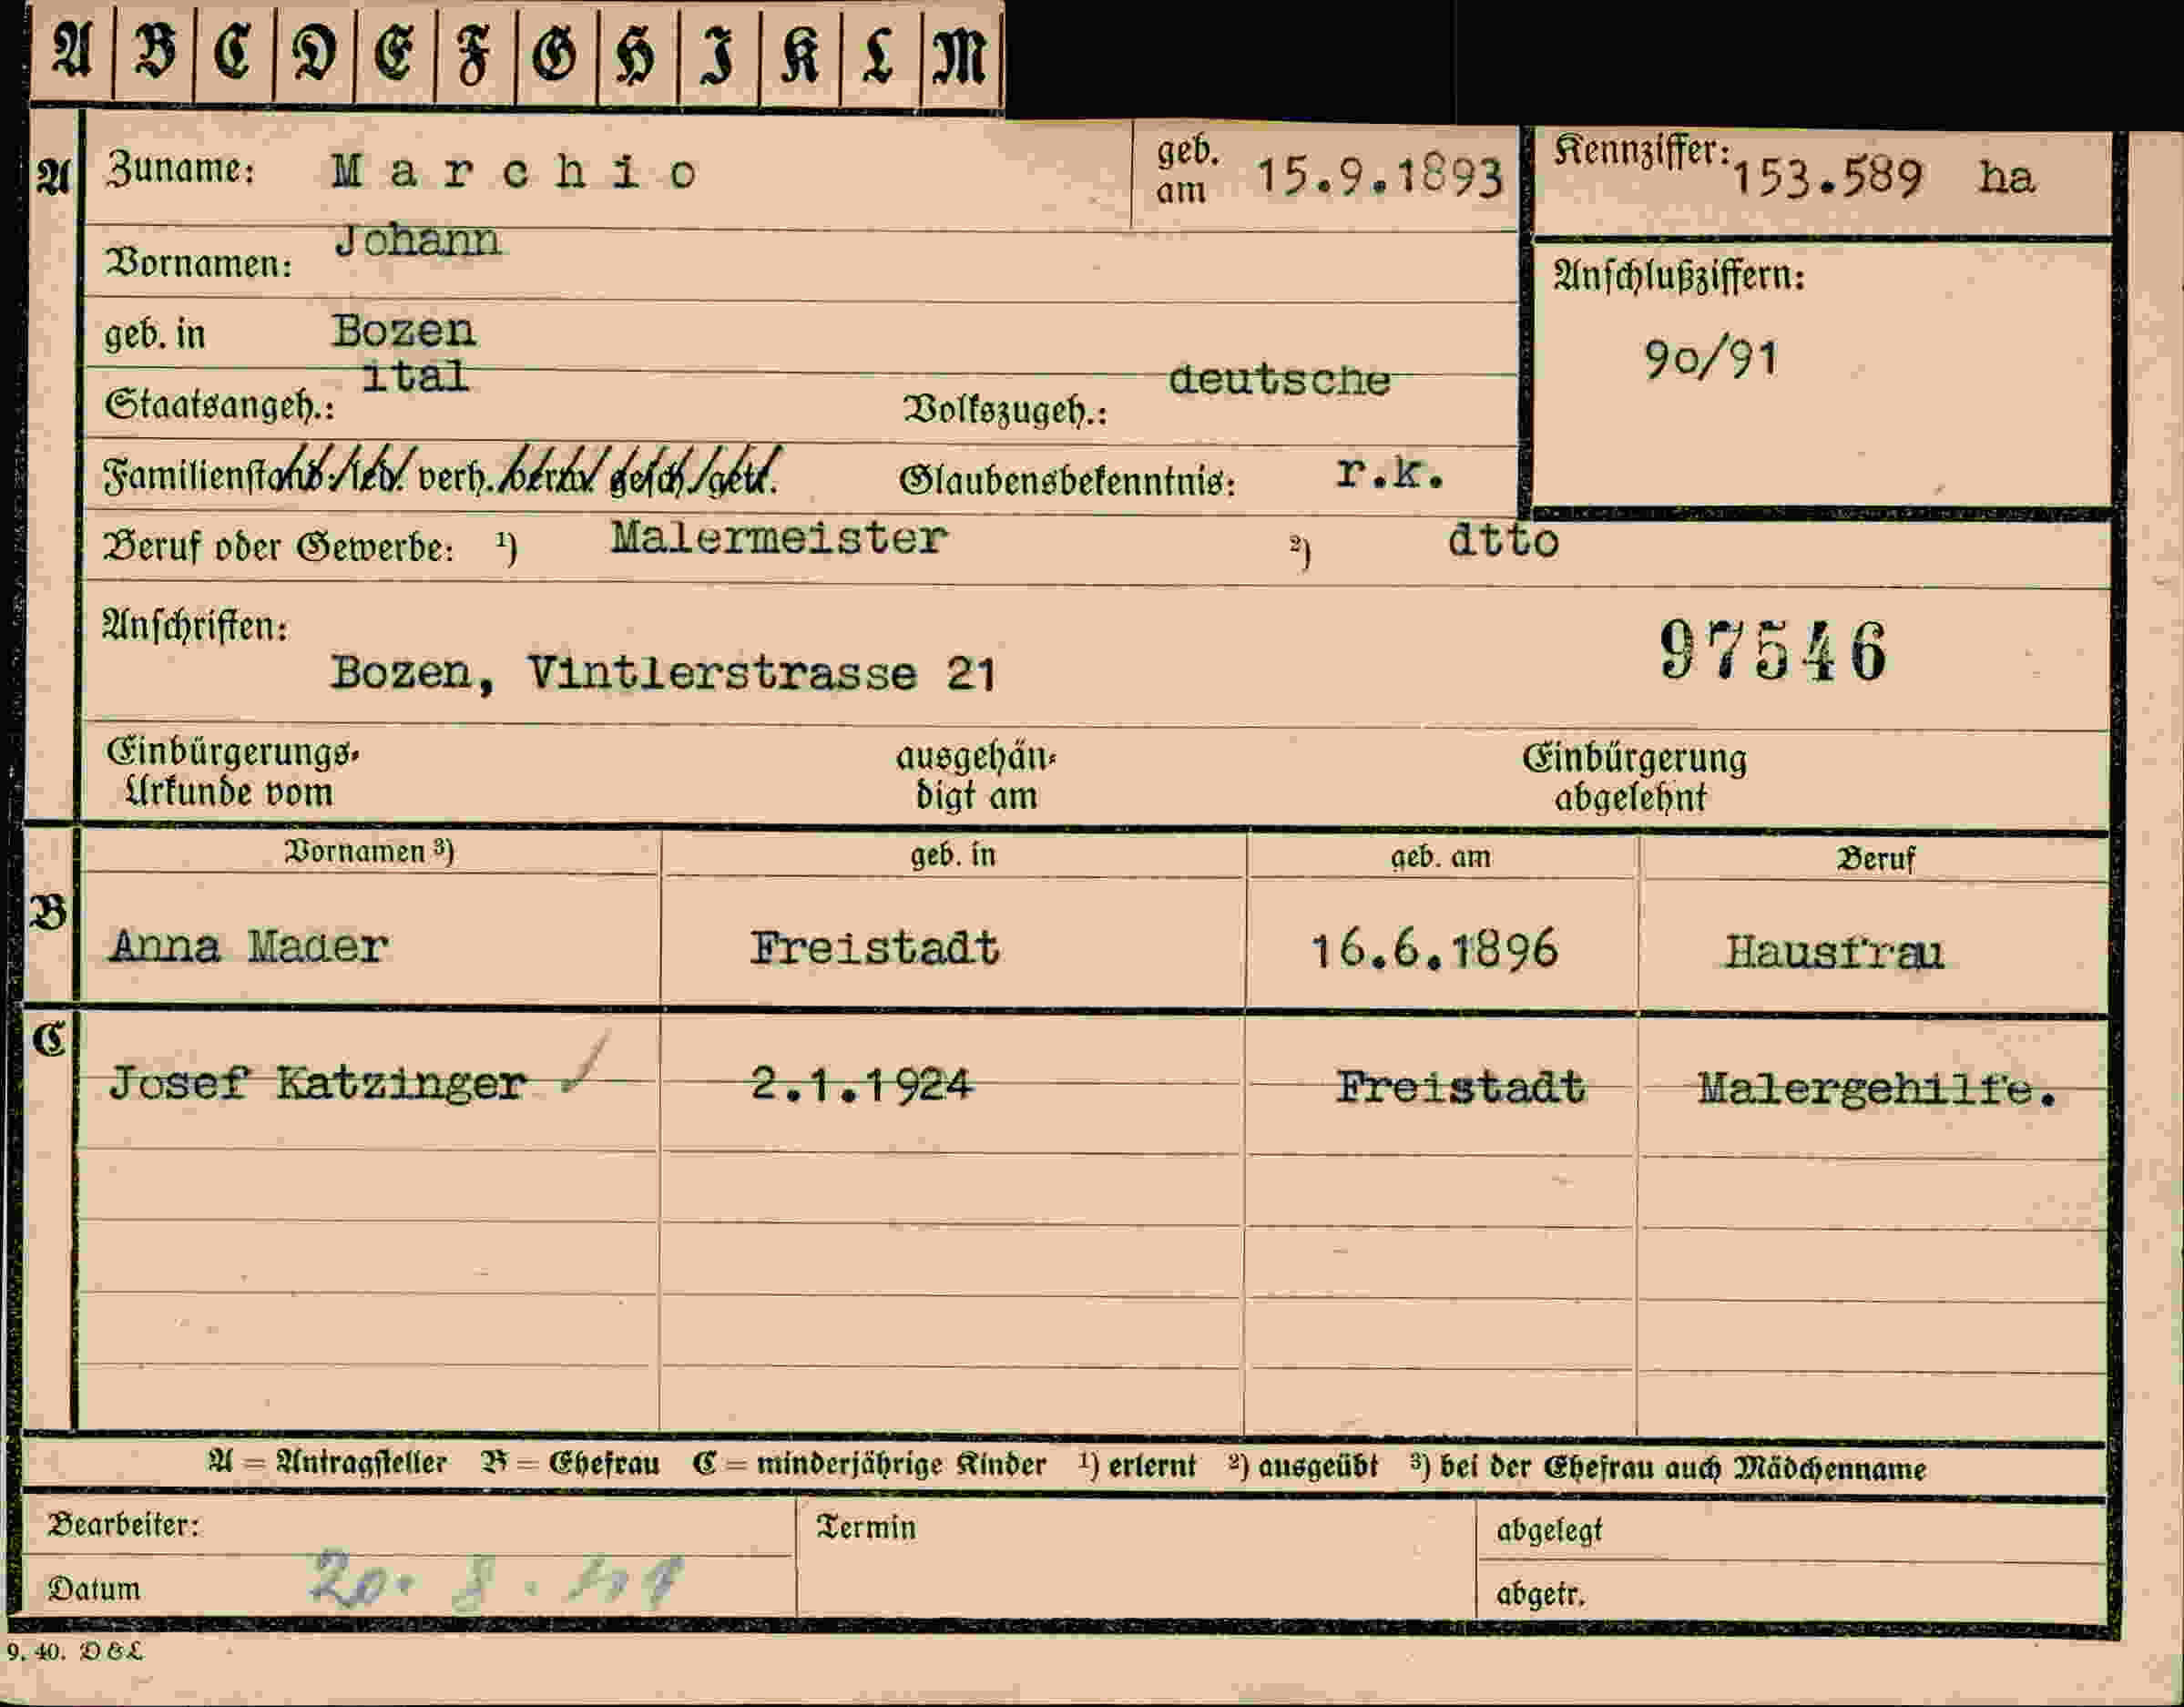 A B C D E F G H I K L M
A Zuname: Marchio geb. am 15.9.1893 Kennziffer: 153.589 ha
Vornamen: Johann
Anschlußziffern:
geb. in Bozen
90/91
Staatsangeh.: ital Volkszugeh.: deutsche
Familienstand: led. verh. verw. gesch. getr. Glaubensbekenntnis: r.k.
Beruf oder Gewerbe: ¹) Malermeister ²) dtto
Anschriften:
Bozen, Vintlerstrasse 21 97546
Einbürgerungs-
Urkunde vom
ausgehän-
digt am
Einbürgerung
abgelehnt
Vornamen ³) geb. in geb. am Beruf
B Anna Mader Freistadt 16.6.1896 Hausfrau
C Josef Katzinger 2.1.1924 Freistadt Malergehilfe.
A = Antragsteller B = Ehefrau C = minderjährige Kinder ¹) erlernt ²) ausgeübt ³) bei der Ehefrau auch Mädchenname
Bearbeiter: Termin abgelegt
Datum 20. 8. abgetr.
9. 40. D&L